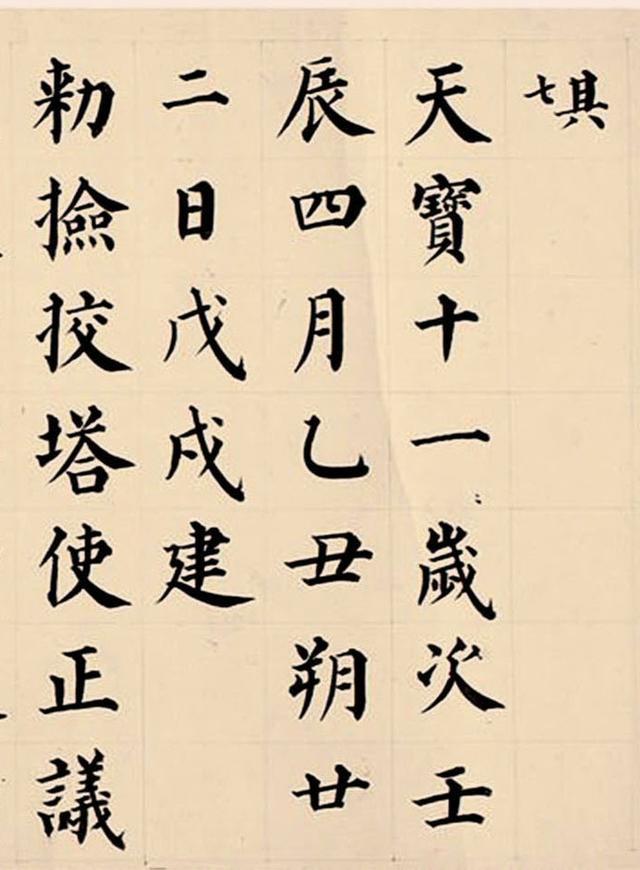 其七
天寶十一歲次壬
辰四月乙丑朔廿
二日戊戌建
勑撿挍塔使正議